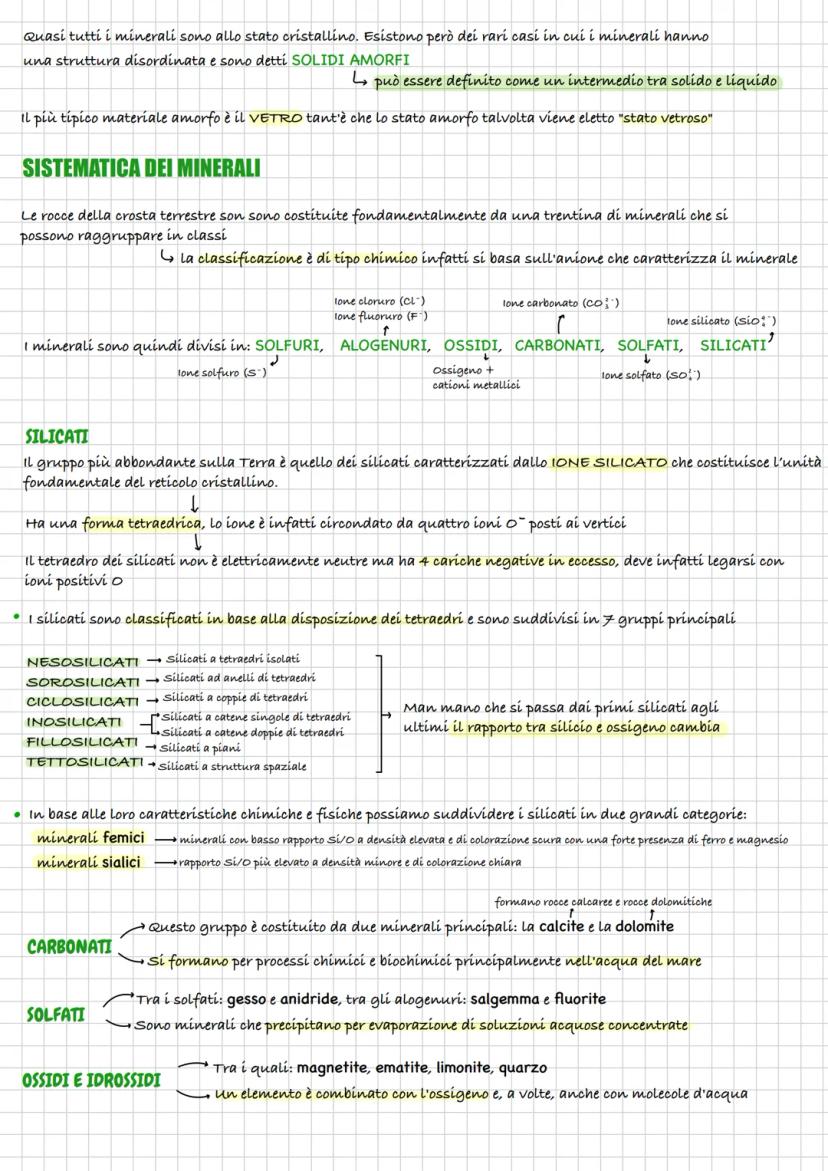 Quasi tutti i minerali sono allo stato cristallino. Esistono però dei rari casi in cui i minerali hanno
una struttura disordinata e sono detti SOLIDI AMORFI
può essere definito come un intermedio tra solido e liquido
Il più tipico materiale amorfo è il VETRO tant'è che lo stato amorfo talvolta viene eletto "stato vetroso"
SISTEMATICA DEI MINERALI
Le rocce della crosta terrestre son sono costituite fondamentalmente da una trentina di minerali che si
possono raggruppare in classi
la classificazione è di tipo chimico infatti si basa sull'anione che caratterizza il minerale
Ione cloruro (Cl⁻)
Ione fluoruro (F⁻)
Ione carbonato (CO₃²⁻)
Ione silicato (SiO₄⁴⁻)
I minerali sono quindi divisi in: SOLFURI, ALOGENURI, OSSIDI, CARBONATI, SOLFATI, SILICATI
Ione solfuro (S⁻)
Ossigeno +
cationi metallici
Ione solfato (SO₄²⁻)
SILICATI
Il gruppo più abbondante sulla Terra è quello dei silicati caratterizzati dallo IONE SILICATO che costituisce l'unità
fondamentale del reticolo cristallino.
Ha una forma tetraedrica, lo ione è infatti circondato da quattro ioni O⁻ posti ai vertici
Il tetraedro dei silicati non è elettricamente neutre ma ha 4 cariche negative in eccesso, deve infatti legarsi con
ioni positivi O
• I silicati sono classificati in base alla disposizione dei tetraedri e sono suddivisi in 7 gruppi principali
NESOSILICATI → Silicati a tetraedri isolati
SOROSILICATI → Silicati ad anelli di tetraedri
CICLOSILICATI → Silicati a coppie di tetraedri
INOSILICATI → Silicati a catene singole di tetraedri
Silicati a catene doppie di tetraedri
FILLOSILICATI → Silicati a piani
TETTOSILICATI → Silicati a struttura spaziale
Man mano che si passa dai primi silicati agli
ultimi il rapporto tra silicio e ossigeno cambia
• In base alle loro caratteristiche chimiche e fisiche possiamo suddividere i silicati in due grandi categorie:
minerali femici → minerali con basso rapporto Si/O a densità elevata e di colorazione scura con una forte presenza di ferro e magnesio
minerali sialici → rapporto Si/O più elevato a densità minore e di colorazione chiara
formano rocce calcaree e rocce dolomitiche
CARBONATI
Questo gruppo è costituito da due minerali principali: la calcite e la dolomite
Si formano per processi chimici e biochimici principalmente nell'acqua del mare
SOLFATI
Tra i solfati: gesso e anidride, tra gli alogenuri: salgemma e fluorite
Sono minerali che precipitano per evaporazione di soluzioni acquose concentrate
OSSIDI E IDROSSIDI
Tra i quali: magnetite, ematite, limonite, quarzo
Un elemento è combinato con l'ossigeno e, a volte, anche con molecole d'acqua